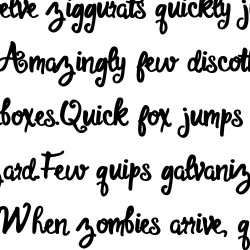 elve ziggurats quickly j
Amazingly few discot
boxes.Quick fox jumps
ard.Few quips galvaniz
When zombies arrive, q